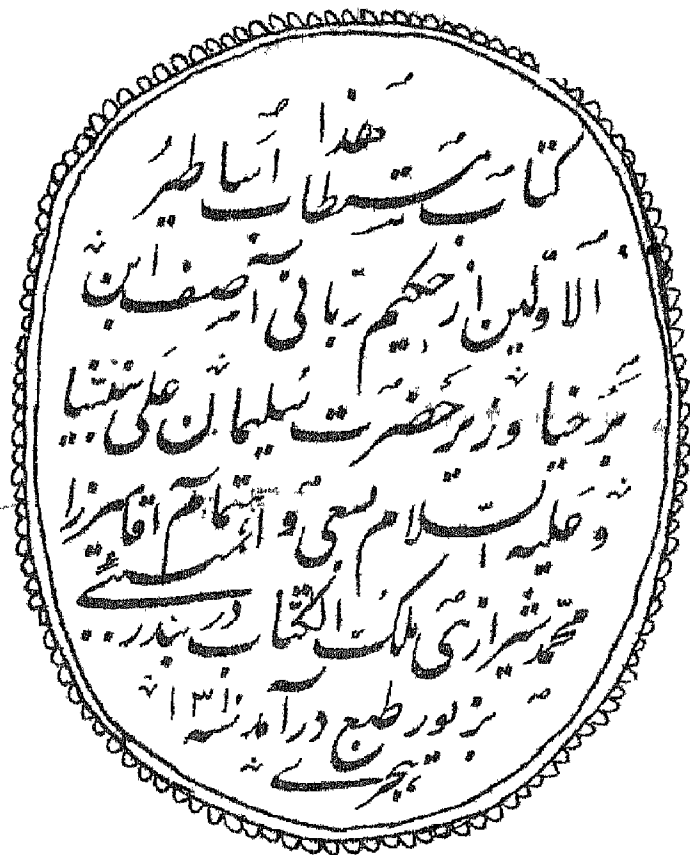 هذا
کتاب مستطاب اساطیر
الاولین از حکیم ربانی آصف ابن
برخیا وزیر حضرت سلیمان علی نبینا
و علیه السلام بسعی و اهتمام آقا میرزا
محمد شیرازی ملک الکتاب در بندر بمبئی
بزیور طبع درآمد سنه ۱۳۱۰
هجری